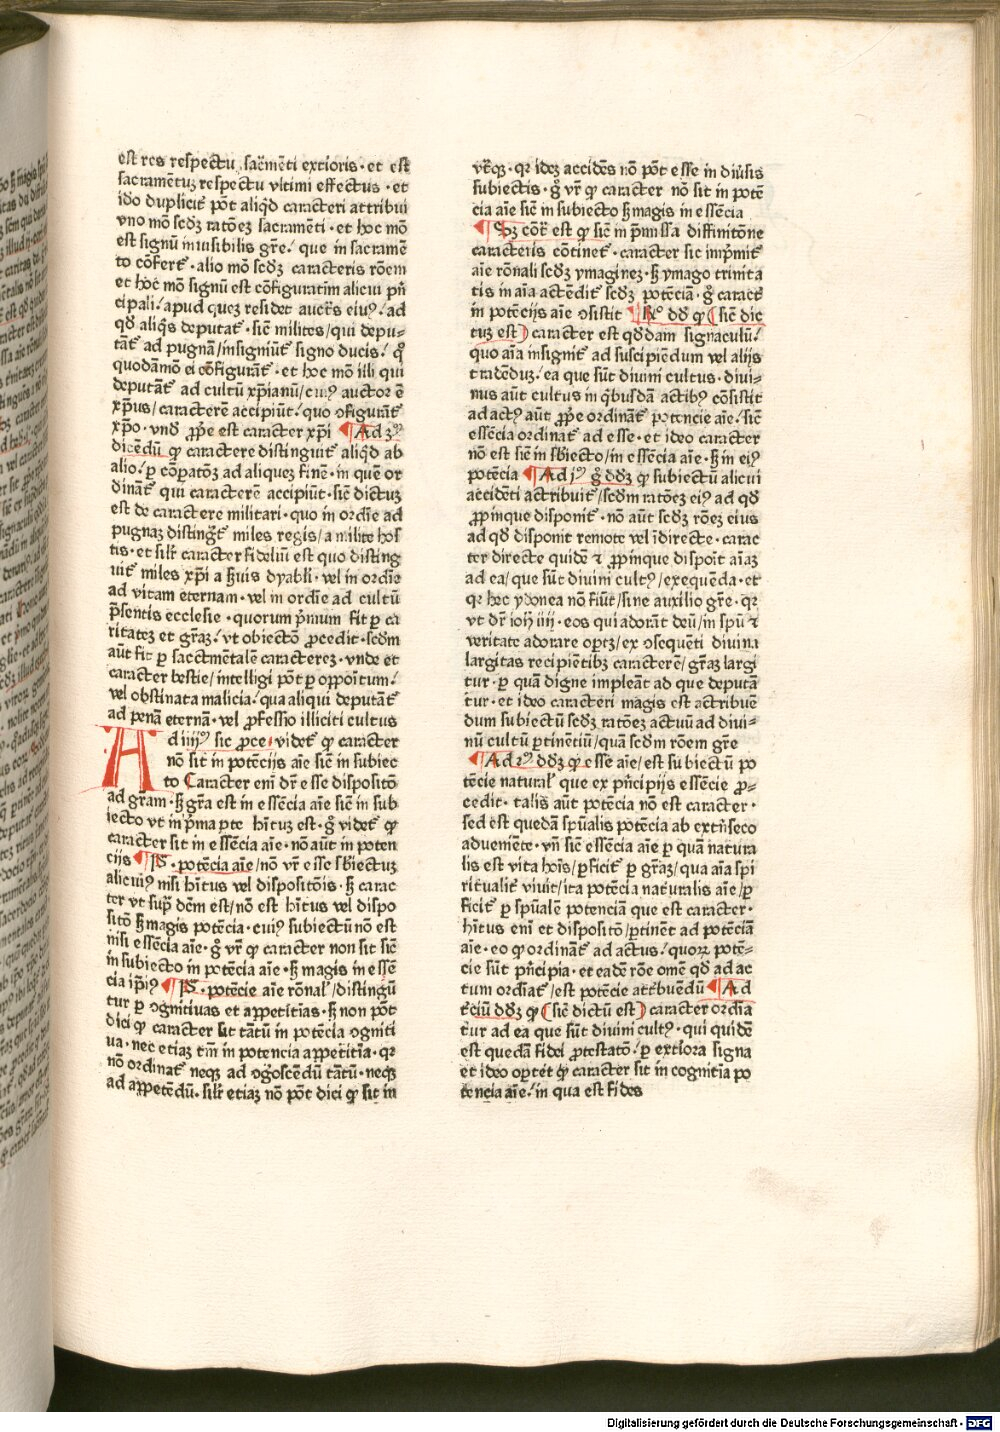 est res respectu sac̄mēti extioris · et est
sacramentuꝫ respectu vltimi effectus · et
iđo duplicit̄ pōt aliqđ caracteri attribui
vno mō scđꝫ ratōeꝫ sacramēti · et hoc mō
est signū inuisibilis gr̄e / que in sacramē
to cōfert̄ · alio mō scđꝫ caracteris rōem
et hoc mō signū est cōfiguratim alicui pn̄
cipali / apud quez residet auct̄s eiꝰ / ad
qđ aliqs deputat̄ · sic̄ milites / qui depu-
tāt̄ ad pugnā / insigniūt̄ signo ducis / qͦ
quodāmō ei cōfigurāt̄ · et hoc mō illi qui
deputāt̄ ad cultū xp̄ianū / cuiꝰ auctor ē
xp̄us / caracterē accipiūt / quo ↄfigurāt̄
xp̄o · vnđ ꝓp̄e est caracter xp̄i ¶ Ad 3ꝰ
dicēdū ꝙ caractere distinguit̄ aliqđ ab
alio / ꝑ cōꝑatōꝫ ad aliqueꝫ finē · in quē or
dinat̄ qui caracterē accipiūt · sic̄ dictuꝫ
est de caractere militari · quo in ordīe ad
pugnaꝫ distingt̄ miles regis / a milite hos
tis · et silr̄ caracter fideliū est quo disting
uit̄ miles xp̄i a ẜuis dyabli · vel in ordīe
ad vitam eternam · vel in ordīe ad cultū
p̄sentis ecclesie · quorum pͥmum fit ꝑ ca
ritateꝫ et gr̄aꝫ / vt obiectō ꝓcedit · scđm
aūt fit ꝑ sacc̄mētalē caractereꝫ · vnde et
caracter bestie / intelligi pōt ꝑ oppoītum /
vel obstinata malicia / qua aliqui deputāt̄
ad penā eternā · vel ꝓfessio illiciti cultus
Ad iiijꝰ sic ꝓce · videt̄ ꝙ caracter
nō sit in potēcijs aīe sic̄ in subiec
to Caracter enī dr̄ esse dispositō
ad gr̄am · ẜ gr̄a est in essēcia aīe sic̄ in sub
iecto vt in pͥma ꝑte hītuꝫ est · gͦ videt̄ ꝙ
caracter sit in essēcia aīe · nō aūt in poten
cijs ¶ Pͬ. potēcia aīe / nō vr̄ esse sbiectuꝫ
alicuiꝰ nisi hītus vel dispositōis · ẜ carac
ter vt supͣ dc̄m est / nō est hītus vel dispo
sitō ẜ magis potēcia · cuiꝰ subiectū nō est
nisi essēcia aīe · gͦ vr̄ ꝙ caracter non sit sic̄
in subiecto in potēcia aīe · ẜ magis in essē
cia ip̄iꝰ ¶ Pͬ. potēcie aīe rōnal̄ / distingū
tur ꝑ ↄgnitiuas et appetitias · ẜ non pōt
dici ꝙ caracter sit tātū in potēcia ↄgniti
ua · nec etiaꝫ tm̄ in potencia appetitīa · qꝛ
nō ordinat̄ neqꝫ ad ↄgoscēdū tātū · neqꝫ
ad appetēdū · silr̄ etiaꝫ nō pōt dici ꝙ sit in
vtͣqꝫ · qꝛ ideꝫ accidēs nō pōt esse in diuͥsis
subiectis · gͦ vr̄ ꝙ caracter nō sit in potē
cia aīe sic̄ in subiecto ẜ magis in essēcia
¶ Sꝫ cōt̄ est ꝙ sic̄ in pͥmissa diffinitōne
caracteris cōtinet̄ · caracter sic impͥmit̄
aīe rōnali scđꝫ ymagineꝫ · ẜ ymago trinita
tis in aīa actēdit̄ scđꝫ potēciā · gͦ caract̄
in potēcijs aīe ↄsistit ¶ Rͦ ddđ ꝙ ( sic̄ dic
tuꝫ est ) caracter est qđdam signaculū /
quo aīa insignit̄ ad suscipiēdum vel alijs
tradēduꝫ / ea que sūt diuini cultus · diui-
nus aūt cultus in qͥbusdā actibꝰ cōsistit
ad actꝰ aūt ꝓp̄e ordināt̄ potencie aīe / sic̄
essēcia ordinat̄ ad esse · et ideo caracter
nō est sic̄ in sbiecto / in essēcia aīe · ẜ in eiꝰ
potēcia ¶ Ad jꝰ gͦ dđꝫ ꝙ subiectū alicui
accidēti actribuit̄ / scđm ratōeꝫ eiꝰ ad qđ
ꝓpinque disponit̄ · nō aūt scđꝫ rōeꝫ eius
ad qđ disponit remote vel īdirecte · carac
ter directe quidē ⁊ ꝓpinque dispoīt aīaꝫ
ad ea / que sūt diuini cultꝰ / exequēda · et
qꝛ hec ydonea nō fiūt / sine auxilio gr̄e · qꝛ
vt dr̄ ioīj iiij · eos qui adorāt deū / in spū ⁊
veritate adorare oꝑtꝫ / ex ↄsequēti diuina
largitas recipiētibꝫ caracterē / gr̄aꝫ largi
tur · ꝑ quā digne impleāt ad que deputā
tur · et ideo caracteri magis est actribuē
dum subiectū scđꝫ ratōeꝫ actuū ad diui-
nū cultū ꝑtinētiū / quā scđm rōem gr̄e
¶ Ad 2ꝰ dđꝫ ꝙ esse aīe / est subiectū po
tēcie natural̄ que ex pn̄cipijs essēcie ꝓ-
cedit · talis aūt potēcia nō est caracter ·
sed est quedā spūalis potēcia ab extn̄seco
adueniēte · vn̄ sic̄ essēcia aīe ꝑ quā natura
lis est vita hoīs / ꝑficit̄ ꝑ gr̄aꝫ / qua aīa spi
ritualit̄ viuit / ita potēcia naturalis aīe / ꝑ
ficit̄ ꝑ spūalē potenciā que est caracter ·
hītus enī et dispositō / ꝑtinēt ad potēciā
aīe · eo ꝙ ordināt̄ ad actus / quoꝝ potē-
cie sūt pn̄cipia · et eadē rōe omē qđ ad ac
tum ordīat̄ / est potēcie attͥbuēdū ¶ Ad
tͨciū ddꝫ ꝙ ( sic̄ dictū est ) caracter ordīa
tur ad ea que sūt diuini cultꝰ · qui quidē
est quedā fidei ꝓtestatō / ꝑ extīora signa
et ideo oꝑtet ꝙ caracter sit in cognitīa po
tencia aīe / in qua est fides
Digitalisierung gefördert durch die Deutsche Forschungsgemeinschaft - DFG